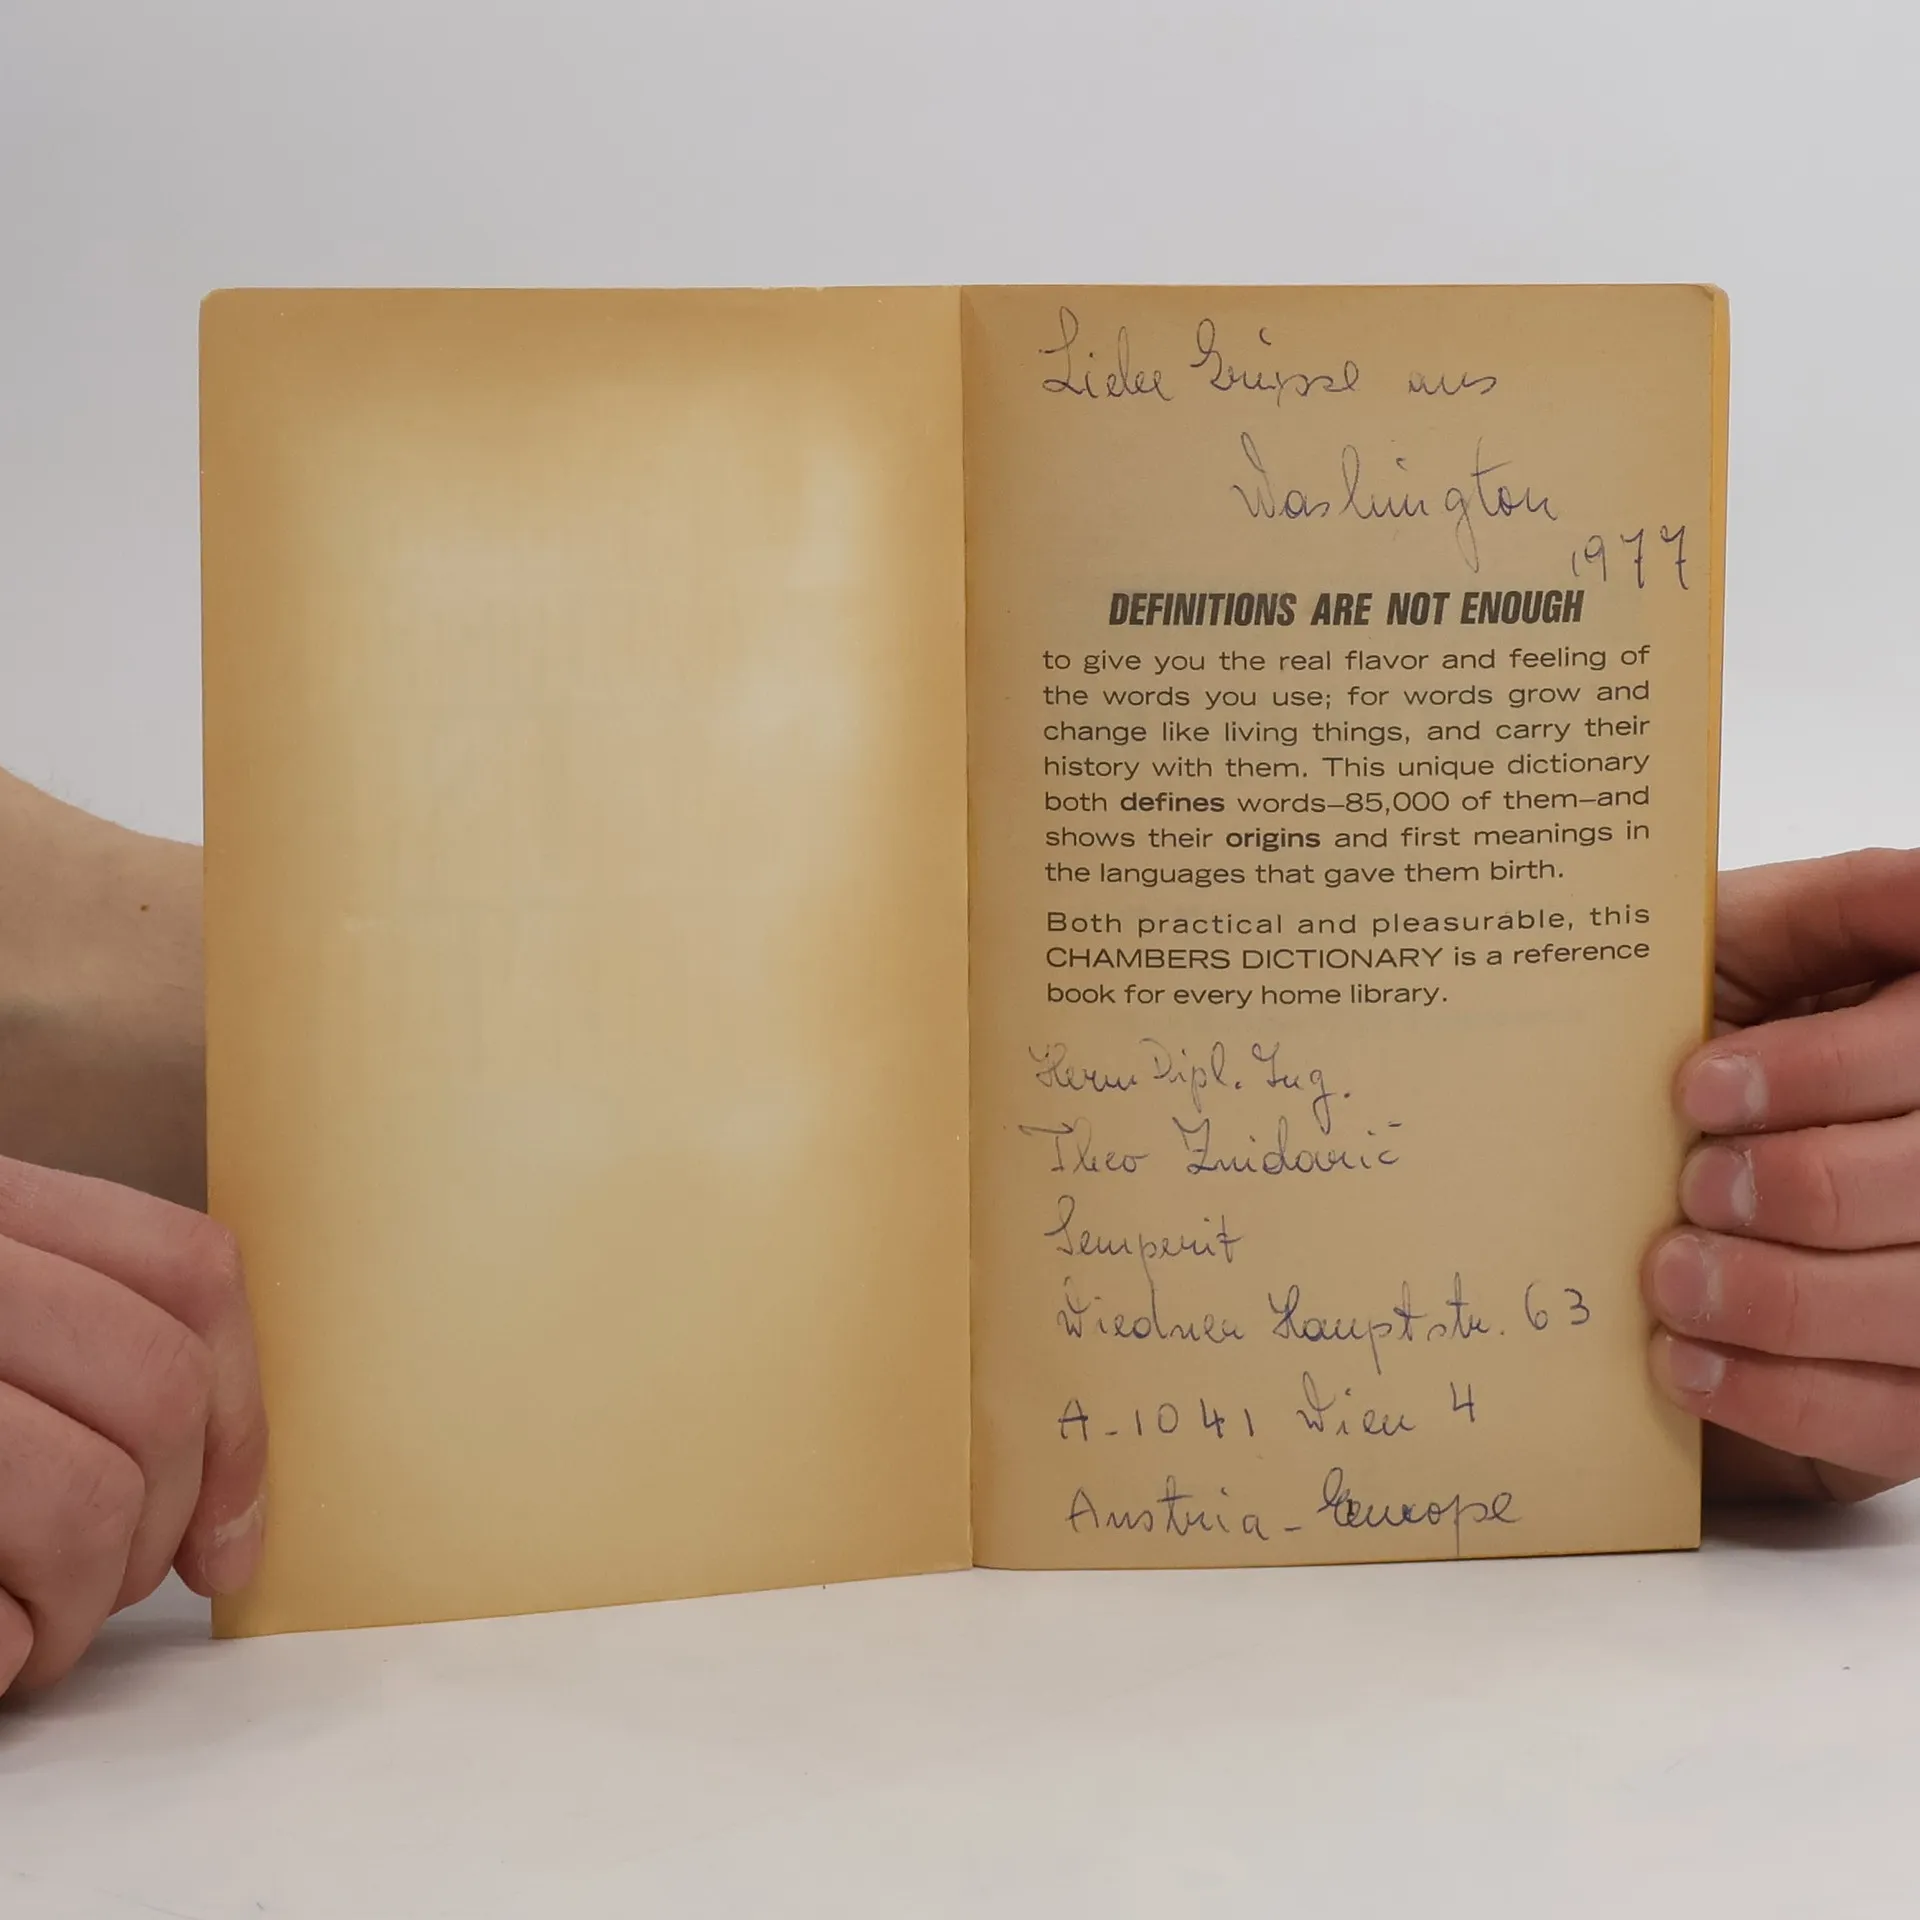 Liebe Grüsse aus
Washington
1977
DEFINITIONS ARE NOT ENOUGH
to give you the real flavor and feeling of
the words you use; for words grow and
change like living things, and carry their
history with them. This unique dictionary
both defines words—85,000 of them—and
shows their origins and first meanings in
the languages that gave them birth.
Both practical and pleasurable, this
CHAMBERS DICTIONARY is a reference
book for every home library.
Herrn Dipl. Ing.
Theo Znidarič
Semperit
Wiedner Hauptstr. 63
A-1041 Wien 4
Austria - Europe